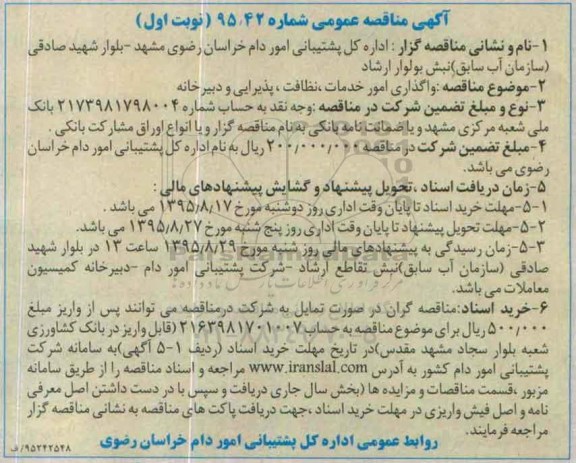 آگهی مناقصه عمومی شماره ۹۵،۴۲ (نوبت اول)
۱-نام و نشانی مناقصه گزار : اداره کل پشتیبانی امور دام خراسان رضوی مشهد -بلوار شهید صادقی
(سازمان آب سابق)نبش بولوار ارشاد
۲-موضوع مناقصه :واگذاری امور خدمات ،نظافت ، پذیرایی و دبیرخانه
۳-نوع و مبلغ تضمین شرکت در مناقصه :وجه نقد به حساب شماره ۲۱۷۳۹۸۱۷۹۸۰۰۴ بانک
ملی شعبه مرکزی مشهد و یا ضمانت نامه بانکی به نام مناقصه گزار و یا انواع اوراق مشارکت بانکی .
۴-مبلغ تضمین شرکت در مناقصه ۲۰۰٫۰۰۰٫۰۰۰ ریال به نام اداره کل پشتیبانی امور دام خراسان
رضوی می باشد.
۵-زمان دریافت اسناد ،تحویل پیشنهاد و گشایش پیشنهادهای مالی :
۵-۱-مهلت خرید اسناد تا پایان وقت اداری روز دوشنبه مورخ ۱۳۹۵/۸/۱۷ می باشد .
۵-۲-مهلت تحویل پیشنهاد تا پایان وقت اداری روز پنج شنبه مورخ ۱۳۹۵/۸/۲۷ می باشد.
۵-۳-زمان رسیدگی به پیشنهادهای مالی روز شنبه مورخ ۱۳۹۵/۸/۲۹ ساعت ۱۳ در بلوار شهید
صادقی (سازمان آب سابق)نبش تقاطع ارشاد -شرکت پشتیبانی امور دام -دبیرخانه کمیسیون
معاملات می باشد.
۶-خرید اسناد:مناقصه گران در صورت تمایل به شرکت درمناقصه می توانند پس از واریز مبلغ
۵۰۰٫۰۰۰ ریال برای موضوع مناقصه به حساب ۲۱۶۳۹۸۱۷۰۱۰۰۷ (قابل واریز در بانک کشاورزی
شعبه بلوار سجاد مشهد مقدس)در تاریخ مهلت خرید اسناد (ردیف ۱-۵ آگهی)به سامانه شرکت
پشتیبانی امور دام کشور به آدرس www.iranslal.com مراجعه و اسناد مناقصه را از طریق سامانه
مزبور ،قسمت مناقصات و مزایده ها (بخش سال جاری دریافت و سپس با در دست داشتن اصل معرفی
نامه و اصل فیش واریزی در مهلت خرید اسناد ،جهت دریافت پاکت های مناقصه به نشانی مناقصه گزار
مراجعه فرمایند.
روابط عمومی اداره کل پشتیبانی امور دام خراسان رضوی
۹۵۲۴۲۵۴۸/ف